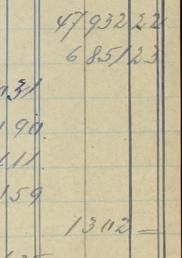 47932 22
685123
31
90
111
159
1302 =